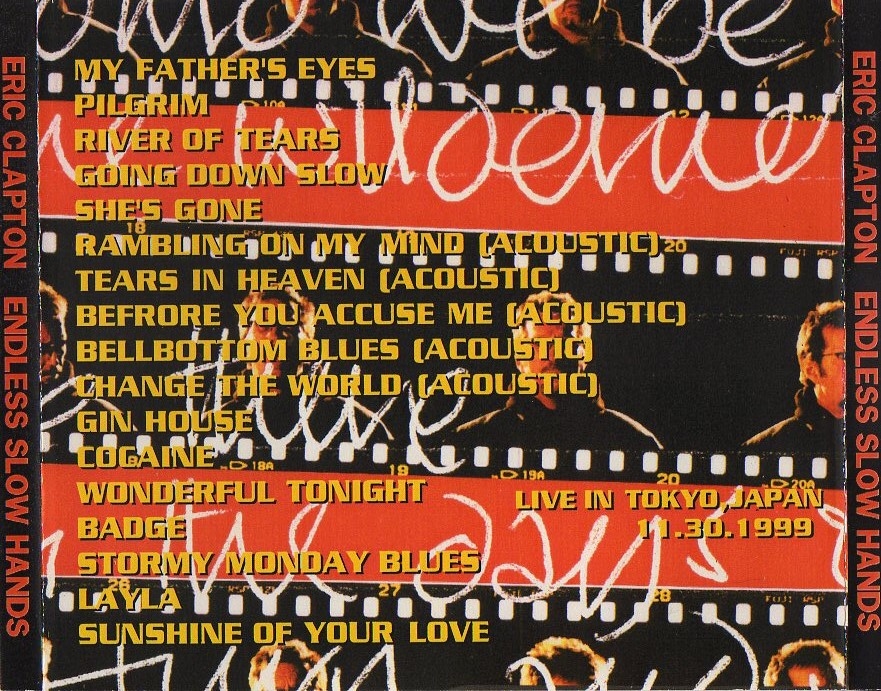 MY FATHER'S EYES
PILGRIM
RIVER OF TEARS
GOING DOWN SLOW
SHE'S GONE
RAMBLING ON MY MIND (ACOUSTIC)
TEARS IN HEAVEN (ACOUSTIC)
BEFRORE YOU ACCUSE ME (ACOUSTIC)
BELLBOTTOM BLUES (ACOUSTIC)
CHANGE THE WORLD (ACOUSTIC)
GIN HOUSE
COCAINE
WONDERFUL TONIGHT
BADGE
STORMY MONDAY BLUES
LAYLA
SUNSHINE OF YOUR LOVE
LIVE IN TOKYO, JAPAN
11.30.1999
ERIC CLAPTON ENDLESS SLOW HANDS
ERIC CLAPTON ENDLESS SLOW HANDS
18
20
18A
19
19A
20
20A
26
27
28